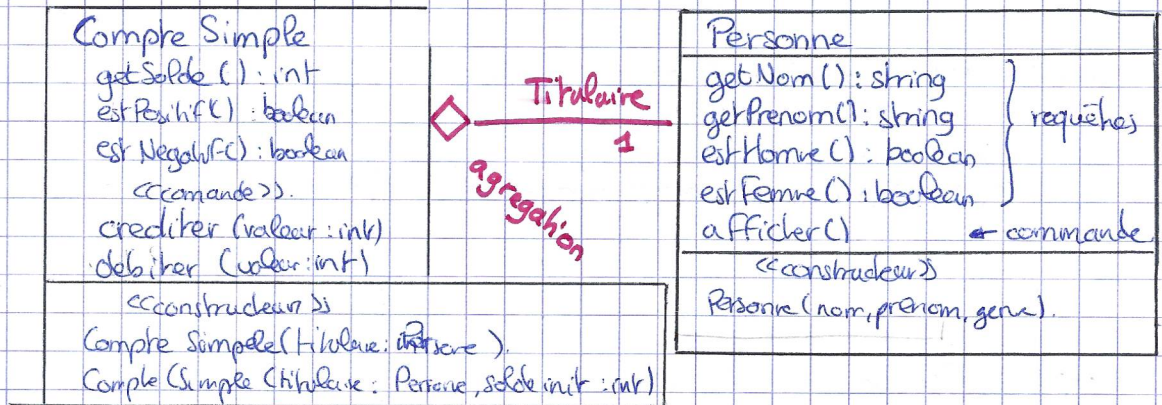 Compte Simple
getSolde () : int
estPositif() : boolean
estNegatif() : boolean
<<comande>>.
crediter (valeur : int)
debiter (valeur : int)
<<constructeur>>
Compte Simple (titulaire : Personne).
Compte (Simple (titulaire : Personne, solde init : int)
Titulaire
1
agregation
Personne
getNom() : string
getPrenom() : string
estHomme () : boolean
estFemme () : boolean
requêtes
afficher()
← commande
<<constructeur>>
Personne (nom, prenom, genre).